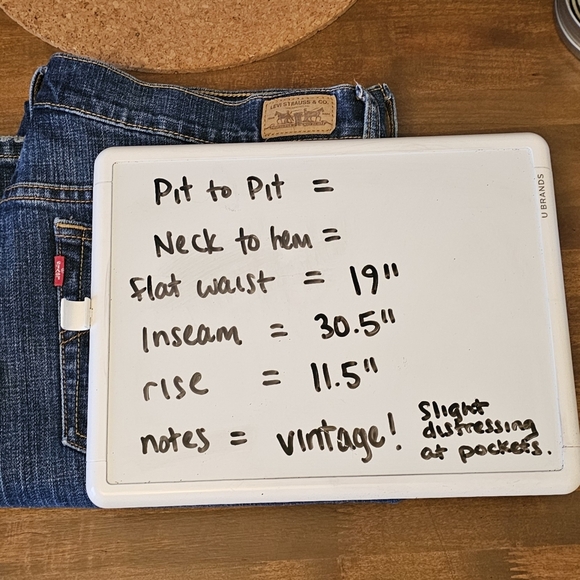 LEVI STRAUSS & CO.
U BRANDS
Pit to Pit =
Neck to hem =
flat waist = 19"
Inseam = 30.5"
rise = 11.5"
notes = vintage! Slight
distressing
at pockets.